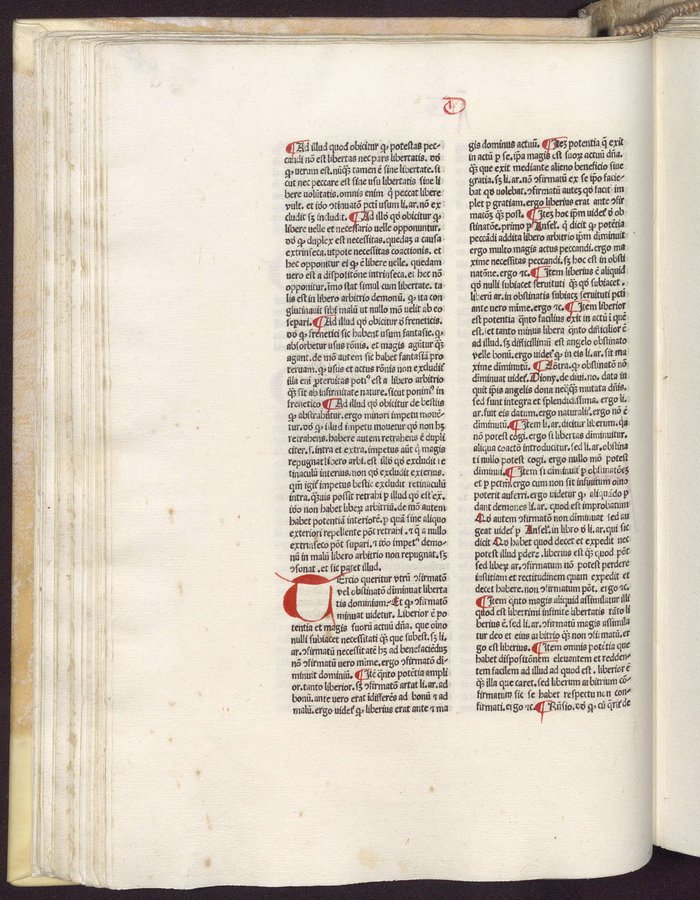 D
¶ Ad illud quod obicitur ꝙ potestas pec-
candi nō est libertas nec pars libertatis. dō
ꝙ verum est. nūꝗ tamen ē sine libertate. si
cut nec peccare est sine usu libertatis siue li
bere volūtatis. omnis enim ꝗ peccat libere
vult. et iō ↄtinuatō pcti usum li. ar. nō ex
cludit sꝫ includit. ¶ Ad illd qō obicitur ꝙ
libere uelle et necessario uelle opponuntur.
dō ꝙ duplex est necessitas. quedaꝫ a causa
extrinseca. utpote necessitas coactionis. et
hec opponitur ei ꝙ ē libere uelle. quedam
uero est a dispositōne intrinseca. et hec nō
opponitur. imo stat simul cum libertate. ta
lis est in libero arbitrio demonū. ꝙ ita con
glutinauit sibi malū ut nullo mō uelit ab eo
separi. ¶ Ad illud qō obicitur ō freneticis.
dō ꝙ frenetici sic habent usum fantasie. ꝙ
absorbetur usus rōnis. et magis agūtur ꝗꝫ
agant. demō autem sic habet fantasiā pro
teruam. ꝙ usus et actus rōnis non excludit̄
illa eni ꝓteruitas potꝰ est a libero arbitrio
ꝗꝫ sit ab infirmitate nature. sicut ponimꝰ in
frenetico ¶ Ad illud qō obicitur de bestiis
ꝙ absrahūtur. ergo minori impetu mouē-
tur. dō ꝙ illud impetu mouetur qō non hꝫ
retrahens. habere autem retrahens ē dupli
citer. s. intra et extra. impetus aūt ꝗ magis
repugnat libero arbi. est illd qō excludit re
tinaculū interius. non qō excludit exterius.
qm̄ igit̄ impetus bestie excludit retinaculū
intra. ꝗꝫuis possit retrahi ꝑ illud qō est ex.
iō non habet liberꝫ arbitriū. demō autem
habet potentiā interiorē. ꝑ quā sine aliquo
exteriori repellente pōt retrahi. et ꝗ a nullo
extrinseco pōt supari. et iō impetꝰ demo-
nū in malū libero arbitrio non repugnat. sꝫ
ↄsonat. et sic patet illud.
Tercio queritur vtrū ↄfirmatō
vel obstinatō diminuat liberta
tis dominium. Et ꝙ ↄfirmatō
minuat uidetur. Liberior ē po
tentia et magis suoꝝ actuū dn̄a. que oīno
nulli subiacet necessitati ꝗꝫ que subest. sꝫ li.
ar. ↄfirmatū necessitatē hꝫ ad benefaciēduꝫ
nō ↄfirmatū uero mīme. ergo ↄfirmatō di-
minuit dominiū. ¶ Itē ꝗnto potētia ampli
or. tanto liberior. sꝫ ↄfirmatō artat li. ar. ad
bonū. ante vero erat īdifferēs ad bonū et ad
malū. ergo uidet̄ ꝙ liberius erat ante et ma
gis dominus actuū. ¶ Iteꝫ potentia ꝗ exit
in actū ꝑ se. ip̄a magis est suoꝝ actuū dn̄a.
ꝗꝫ que exit mediante alieno beneficio siue
gratia. sꝫ li. ar. nō ↄfirmatū ex se ip̄o facie-
bat qō uolebat. ↄfirmatū auteꝫ qō facit im
plet ꝑ gratiam. ergo liberius erat ante ↄfir
matōꝫ ꝗꝫ post. ¶ Iteꝫ hoc ip̄m uidet̄ ō ob
stinatōne. primo ꝑ Ansel. ꝗ dicit ꝙ potētia
peccādi addita libero arbitrio ip̄m diminuit
ergo multo magis actus peccandi. ergo ma
xime necessitas peccandi. sꝫ hoc est in obsti
natōne. ergo ⁊c. ¶ Item liberius ē aliquid
qō nulli subiacet seruituti ꝗꝫ qō subiacet.
liberū ar. in obstinatis subiacꝫ seruituti pcti
ante uero mīme. ergo ⁊c. ¶ Item liberior
est potentia ꝗnto facilius exit in actū ī quē
est. et tanto minus libera ꝗnto difficilior ē
ad illud. sꝫ difficillimū est angelo obstinato
velle bonū. ergo uidet̄ ꝙ in eis li. ar. sit ma
xime diminutū. ¶ Cōtra. ꝙ obstinatō nō
diminuat uidet̄. Diony. de diui. no. data in
quit ip̄is angelis dona neꝗꝗꝫ mutata dn̄is.
sed sunt integra et splendidissima. ergo li.
ar. sut eis datum. ergo naturalit̄. ergo nō ē
diminutū. ¶ Item li. ar. dicitur liberum. ꝗa
nō potest cogi. ergo si libertas diminuitur.
aliqua coactō introducitur. sed li. ar. obstina
ti nullo potest cogi. ergo nullo mō potest
diminui. ¶ Item si diminuit̄ ꝑ obstinatōeꝫ
et ꝑ pctm̄. ergo cum non sit infinitum oīno
poterit auferri. ergo videtur ꝙ aliquādo ꝑ
dant demones li. ar. quod est improbatum
Qō autem ↄfirmatō non diminuat sed au
geat uidet̄ ꝑ Ansel. in libro ō li. ar. qui sic
dicit Qō habet quod decet et expedit nec
potest illud ꝑdere. liberius est ꝗꝫ quod pōt
sed liberꝫ ar. ↄfirmatum nō potest perdere
iustitiam et rectitudinem quam expedit et
decet habere. non ↄfirmatum pōt. ergo ⁊c.
¶ Item ꝗnto magis aliquid assimilatur illi
quod est liberrimi infinite libertatis tāto li
berius ē. sed li. ar. ↄfirmatū magis assimila
tur deo et eius arbitrio ꝗꝫ non ↄfirmatū. er
go est liberius. ¶ Item omnis potētia que
habet dispositōnem eleuantem et redden-
tem facilem ad illud ad quod est. liberior ē
ꝗꝫ illa que caret. sed liberum arbitrium cō-
firmatum sic se habet respectu non con-
firmati. ergo ⁊c. ¶ Rn̄sio. dō ꝙ cū ꝗrit̄ de